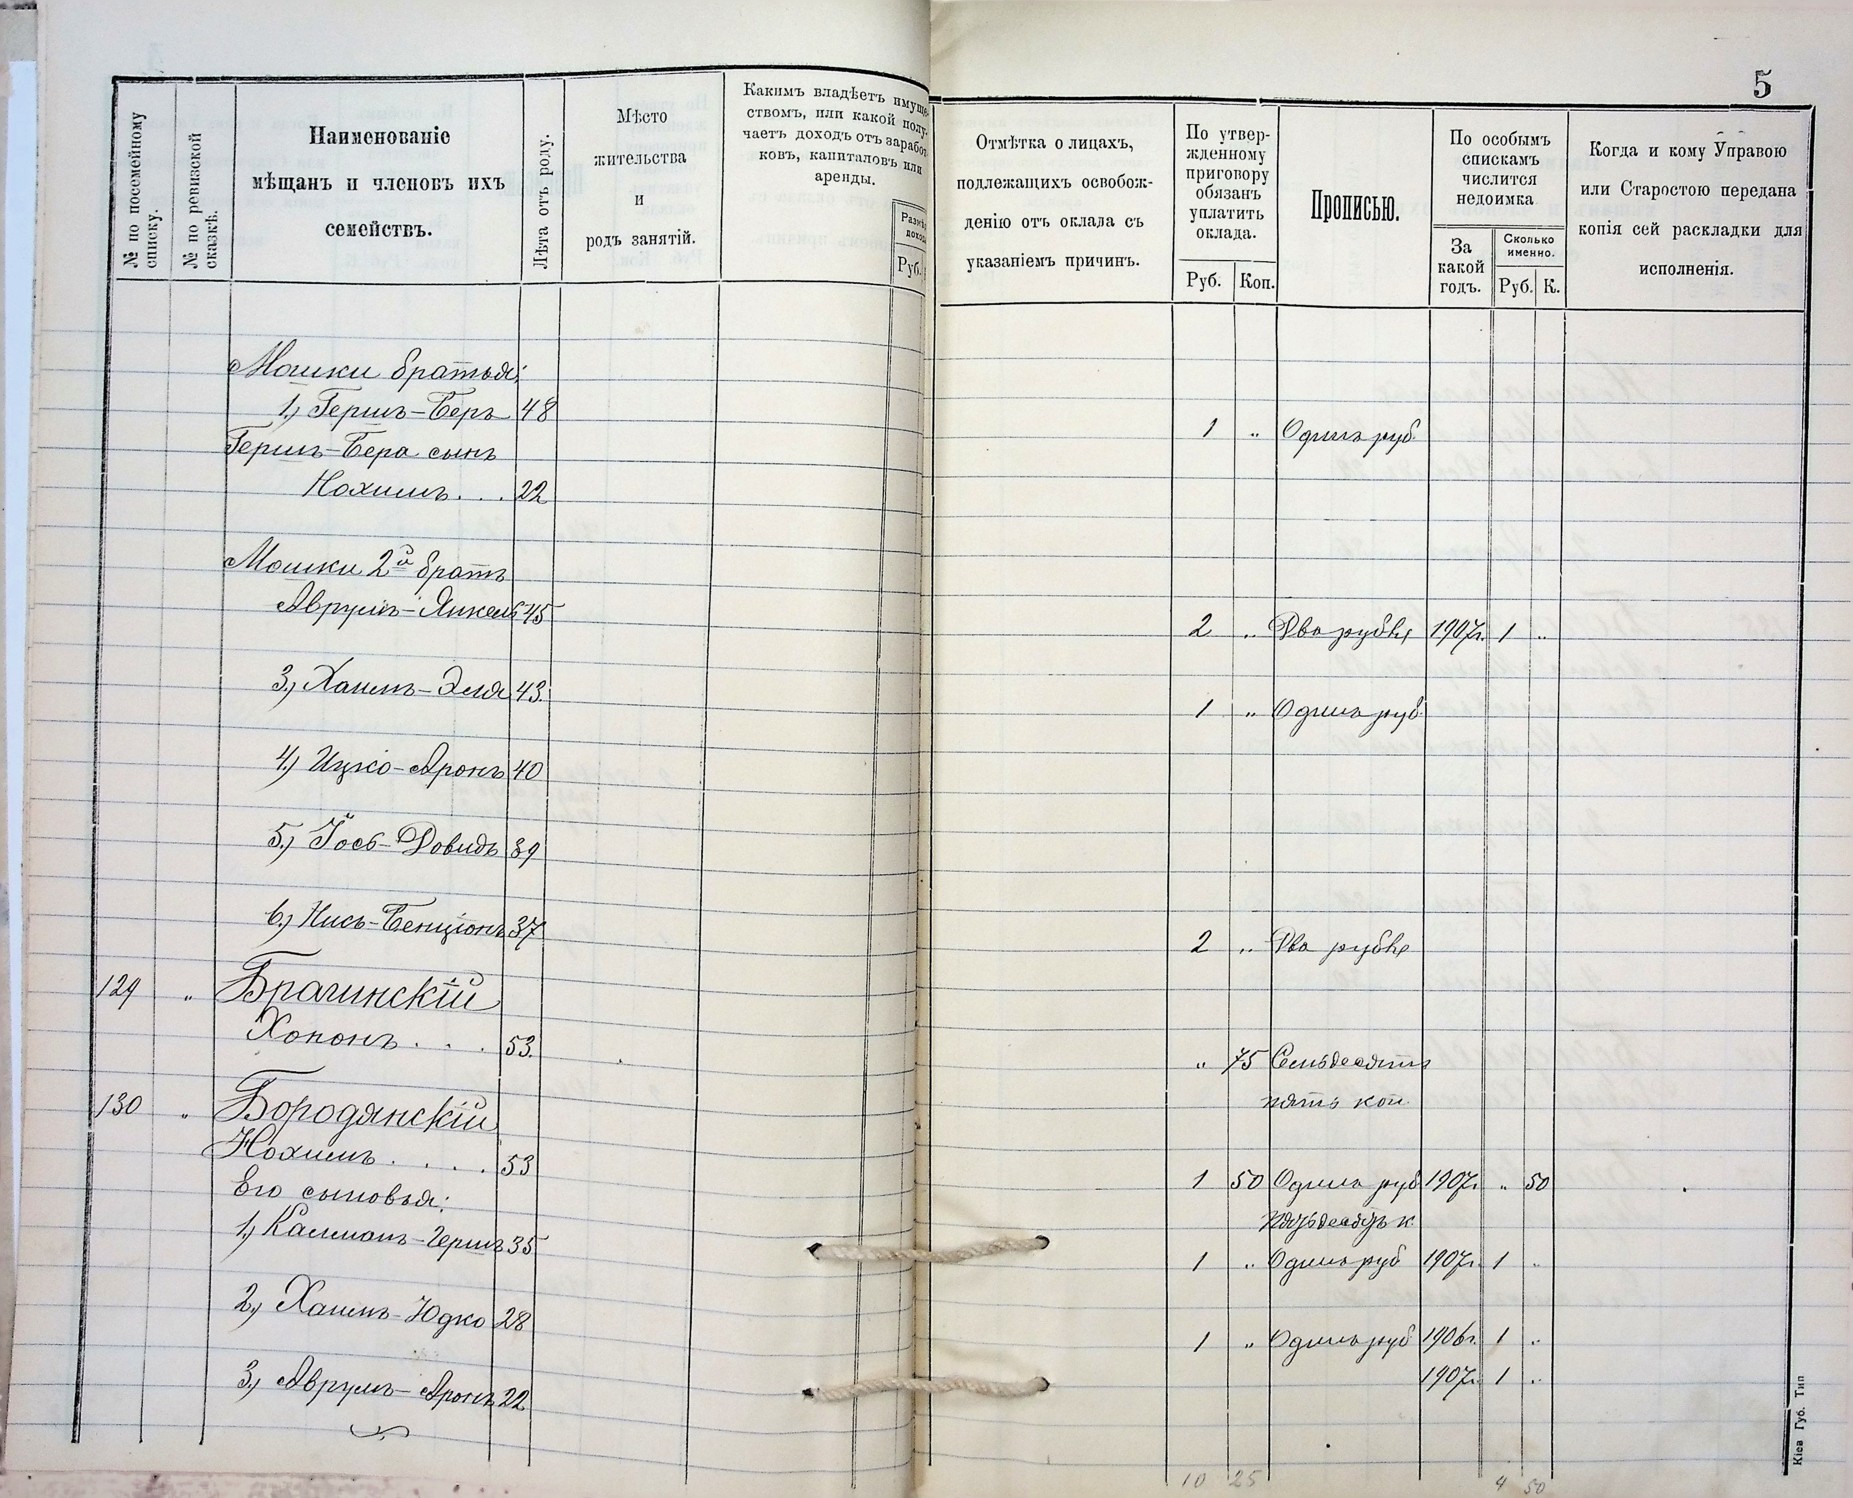 5
№ по посемейному
списку.
№ по ревизской
сказкѣ.
Наименованіе
мѣщанъ и членовъ ихъ
семействъ.
Лѣта отъ роду.
Мѣсто
жительства
и
родъ занятій.
Какимъ владѣетъ имуще-
ствомъ, или какой полу-
чаетъ доходъ отъ заработ-
ковъ, капиталовъ или
аренды.
Руб.
Отмѣтка о лицахъ,
подлежащихъ освобож-
денію отъ оклада съ
указаніемъ причинъ.
По утвер-
жденному
приговору
обязанъ
уплатить
оклада.
Руб. Коп.
Прописью.
По особымъ
спискамъ
числится
недоимка
За
какой
годъ.
Сколько
именно.
Руб. К.
Когда и кому Управою
или Старостою передана
копія сей раскладки для
исполненія.
Мошки братья:
1.) Гершъ-Беръ 48
1 „ Одинъ руб.
Гершъ-Бера сынъ
Нохимъ . . . 22
Мошки 2й братъ
Аврумъ-Янкель 45
2 „ Два рубля 1907г. 1 „
3.) Хаимъ-Эля 43.
1 „ Одинъ руб.
4.) Ицко-Аронъ 40
5.) Йось-Довидъ 39
6.) Нисъ-Бенціонъ 37
2 „ Два рубля
129 „ Брагинскій
Хононъ . . . 53.
„ 75 Семьдесятъ
пять коп.
130 „ Бородянскій
Нохимъ . . . . 53
1 50 Одинъ руб 1907г. „ 50
Его сыновья:
пятьдесятъ к
1.) Калманъ-Гершъ 35
1 „ Одинъ руб 1907г. 1 „
2.) Хаимъ-Юдко 28
1 „ Одинъ руб 1906г. 1 „
3.) Аврумъ-Аронъ 22
1907г. 1 „
10 25 4 50
Кіев Губ. Тип